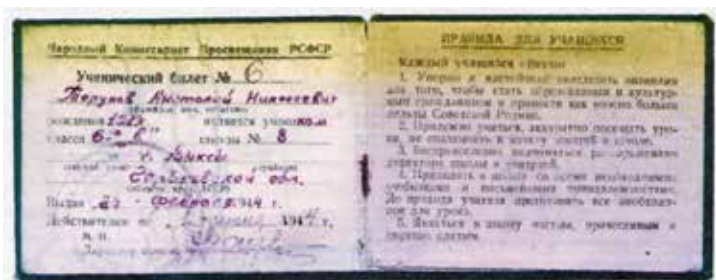 Народный Комиссариат Просвещения РСФСР
Ученический билет № 6
Николаевич
рождения является учеником
класса 6 школы № 8
г. Выксы
Горьковской обл.
Выдан февраля 1944 г.
Действителен по 1944 г.
М. П.
ПРАВИЛА ДЛЯ УЧАЩИХСЯ
Каждый учащийся обязан:
1. Упорно и настойчиво овладевать знаниями
для того, чтобы стать образованным и культур-
ным гражданином и принести как можно больше
пользы Советской Родине.
2. Прилежно учиться, аккуратно посещать уро-
ки, не опаздывать к началу занятий в школе.
3. Беспрекословно подчиняться распоряжениям
директора школы и учителей.
4. Приходить в школу со всеми необходимыми
учебниками и письменными принадлежностями.
До прихода учителя приготовить все необходи-
мое для урока.
5. Являться в школу чистым, причесанным и
опрятно одетым.